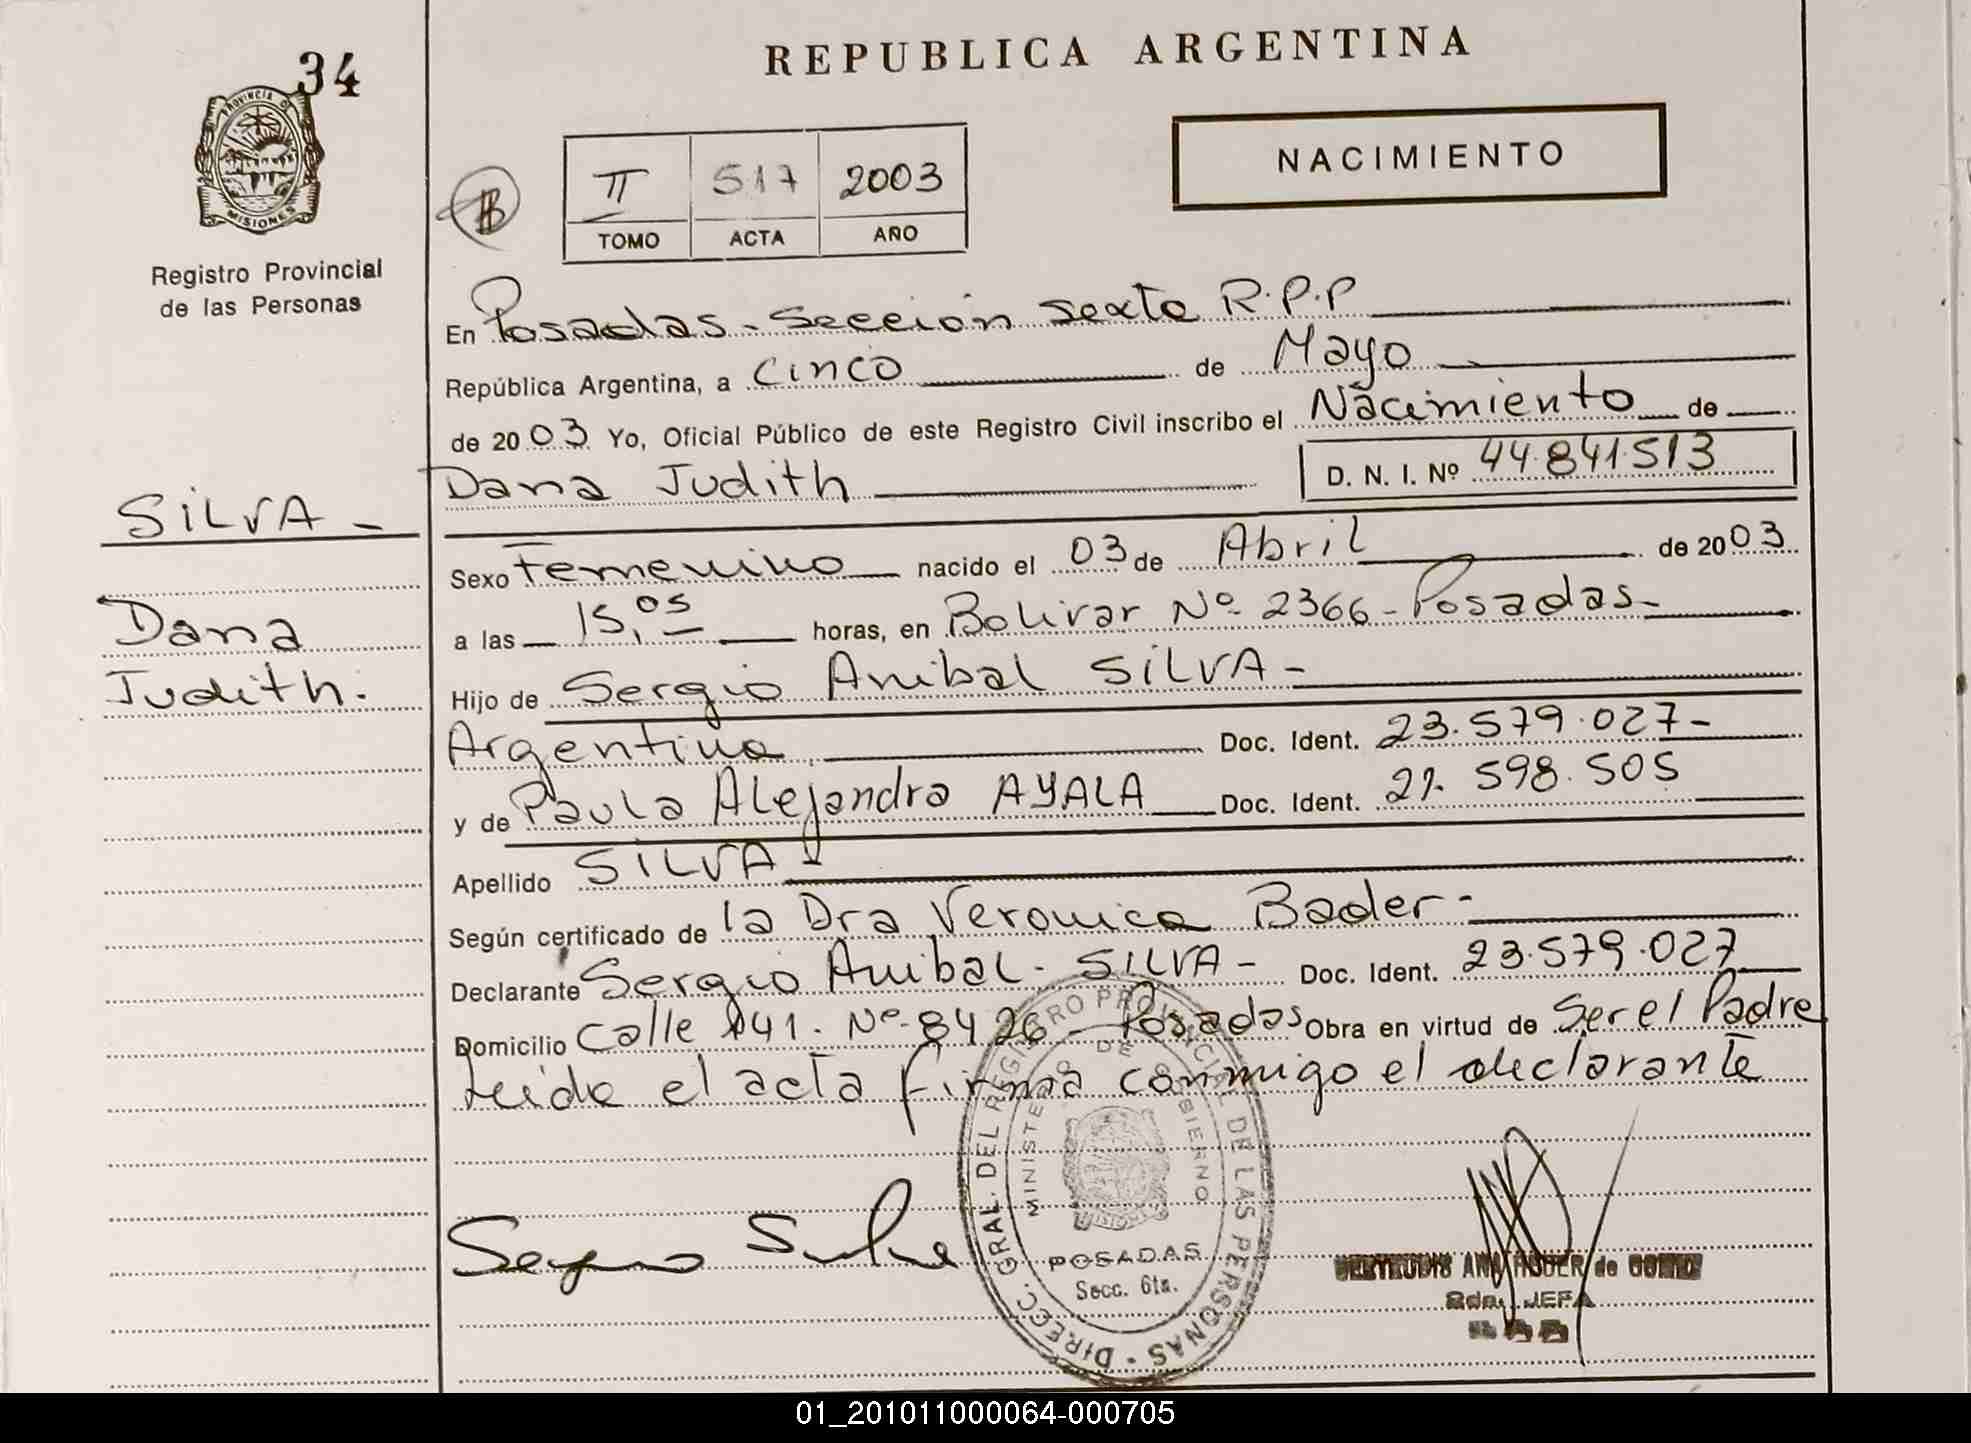 34
PROVINCIA DE
MISIONES
Registro Provincial
de las Personas
REPUBLICA ARGENTINA
NACIMIENTO
B
II 517 2003
TOMO ACTA AÑO
En Posadas - Sección Sexta R.P.P
República Argentina, a Cinco de Mayo
de 2003 Yo, Oficial Público de este Registro Civil inscribo el Nacimiento de
Dana Judith D. N. I. Nº 44.841.513
SILVA -
Dana
Judith.
Sexo Femenino nacido el 03 de Abril de 2003
a las 15,05 horas, en Bolivar Nº 2366 - Posadas -
Hijo de Sergio Anibal SILVA -
Argentino Doc. Ident. 23.579.027 -
y de Paula Alejandra AYALA Doc. Ident. 27. 598.505
Apellido SILVA
Según certificado de la Dra Veronica Bader -
Declarante Sergio Anibal - SILVA - Doc. Ident. 23.579.027
Domicilio Calle 141 - Nº 8426 - Posadas Obra en virtud de Ser el Padre
Leida el acta firma conmigo el declarante
Sergio Silva
DIRECC. GRAL. DEL REGISTRO PROVINCIAL DE LAS PERSONAS
MINISTERIO DE GOBIERNO
MISIONES
POSADAS
Secc. 6ta.
ANA de
2da. JEFA
01_201011000064-000705